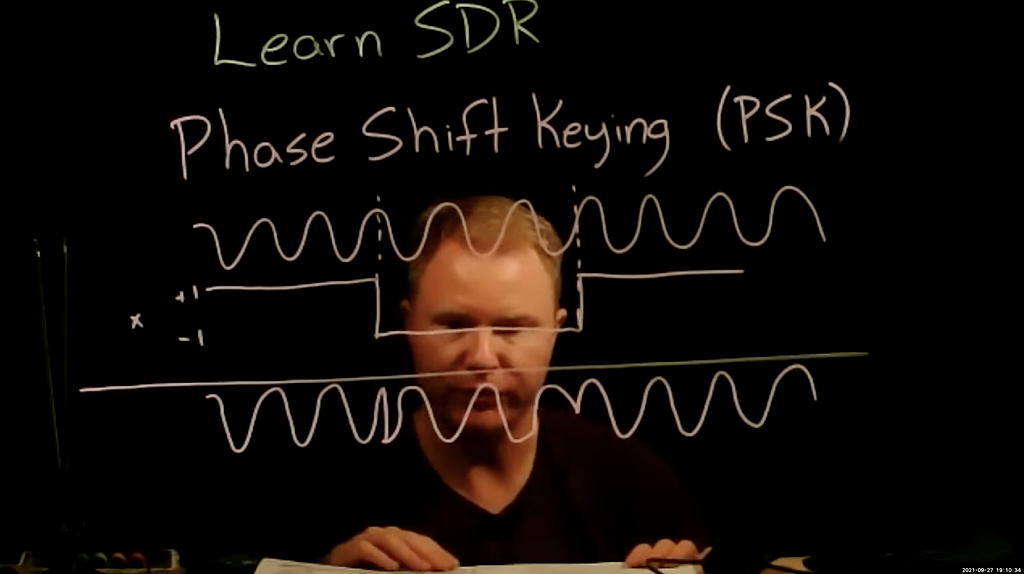 Learn SDR
Phase Shift Keying (PSK)
+1
x
-1
2021-09-27 19:10:34